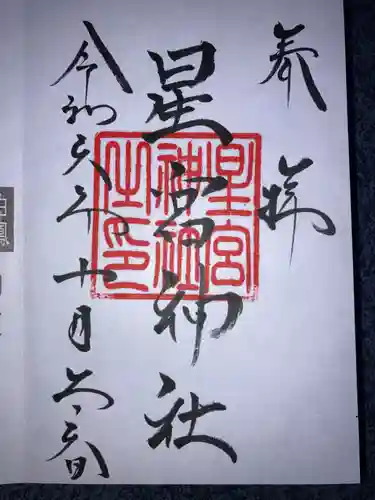 奉拝
星宮神社
星宮神社之印
令和六年十月